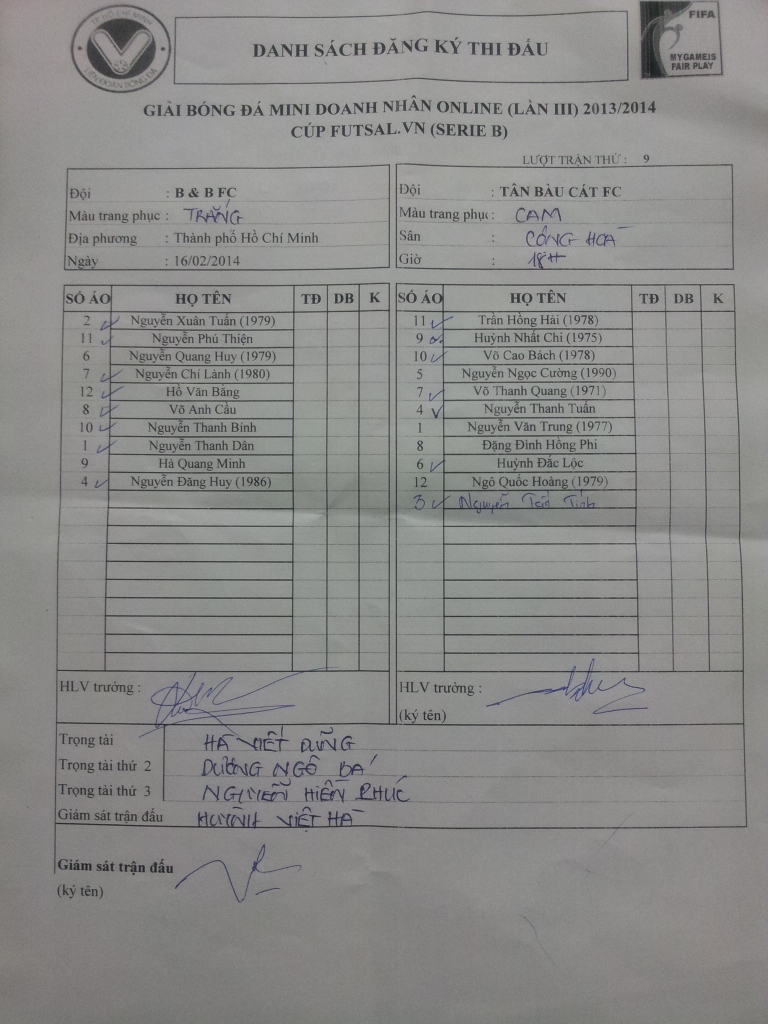 TP HỒ CHÍ MINH
LIÊN ĐOÀN BÓNG ĐÁ
DANH SÁCH ĐĂNG KÝ THI ĐẤU
FIFA
MY GAME IS
FAIR PLAY
GIẢI BÓNG ĐÁ MINI DOANH NHÂN ONLINE (LẦN III) 2013/2014
CÚP FUTSAL.VN (SERIE B)
LƯỢT TRẬN THỨ : 9
Đội : B & B FC
Màu trang phục : TRẮNG
Địa phương : Thành phố Hồ Chí Minh
Ngày : 16/02/2014
Đội : TÂN BÀU CÁT FC
Màu trang phục : CAM
Sân : CỘNG HOÀ
Giờ : 18H
SỐ ÁO HỌ TÊN TĐ DB K
2 Nguyễn Xuân Tuấn (1979)
11 Nguyễn Phú Thiện
6 Nguyễn Quang Huy (1979)
7 Nguyễn Chí Lành (1980)
12 Hồ Văn Băng
8 Võ Anh Cầu
10 Nguyễn Thanh Bính
1 Nguyễn Thanh Dân
9 Hà Quang Minh
4 Nguyễn Đăng Huy (1986)
SỐ ÁO HỌ TÊN TĐ DB K
11 Trần Hồng Hải (1978)
9 Huỳnh Nhất Chi (1975)
10 Võ Cao Bách (1978)
5 Nguyễn Ngọc Cường (1990)
7 Võ Thanh Quang (1971)
4 Nguyễn Thanh Tuấn
1 Nguyễn Văn Trung (1977)
8 Đặng Đình Hồng Phi
6 Huỳnh Đắc Lộc
12 Ngô Quốc Hoàng (1979)
3 Nguyễn Tính
HLV trưởng :
HLV trưởng :
(ký tên)
Trọng tài HÀ VIẾT DŨNG
Trọng tài thứ 2 DƯƠNG NGÔ BÁ
Trọng tài thứ 3 NGUYỄN HIỀN PHÚC
Giám sát trận đấu HUỲNH VIỆT HÀ
Giám sát trận đấu
(ký tên)